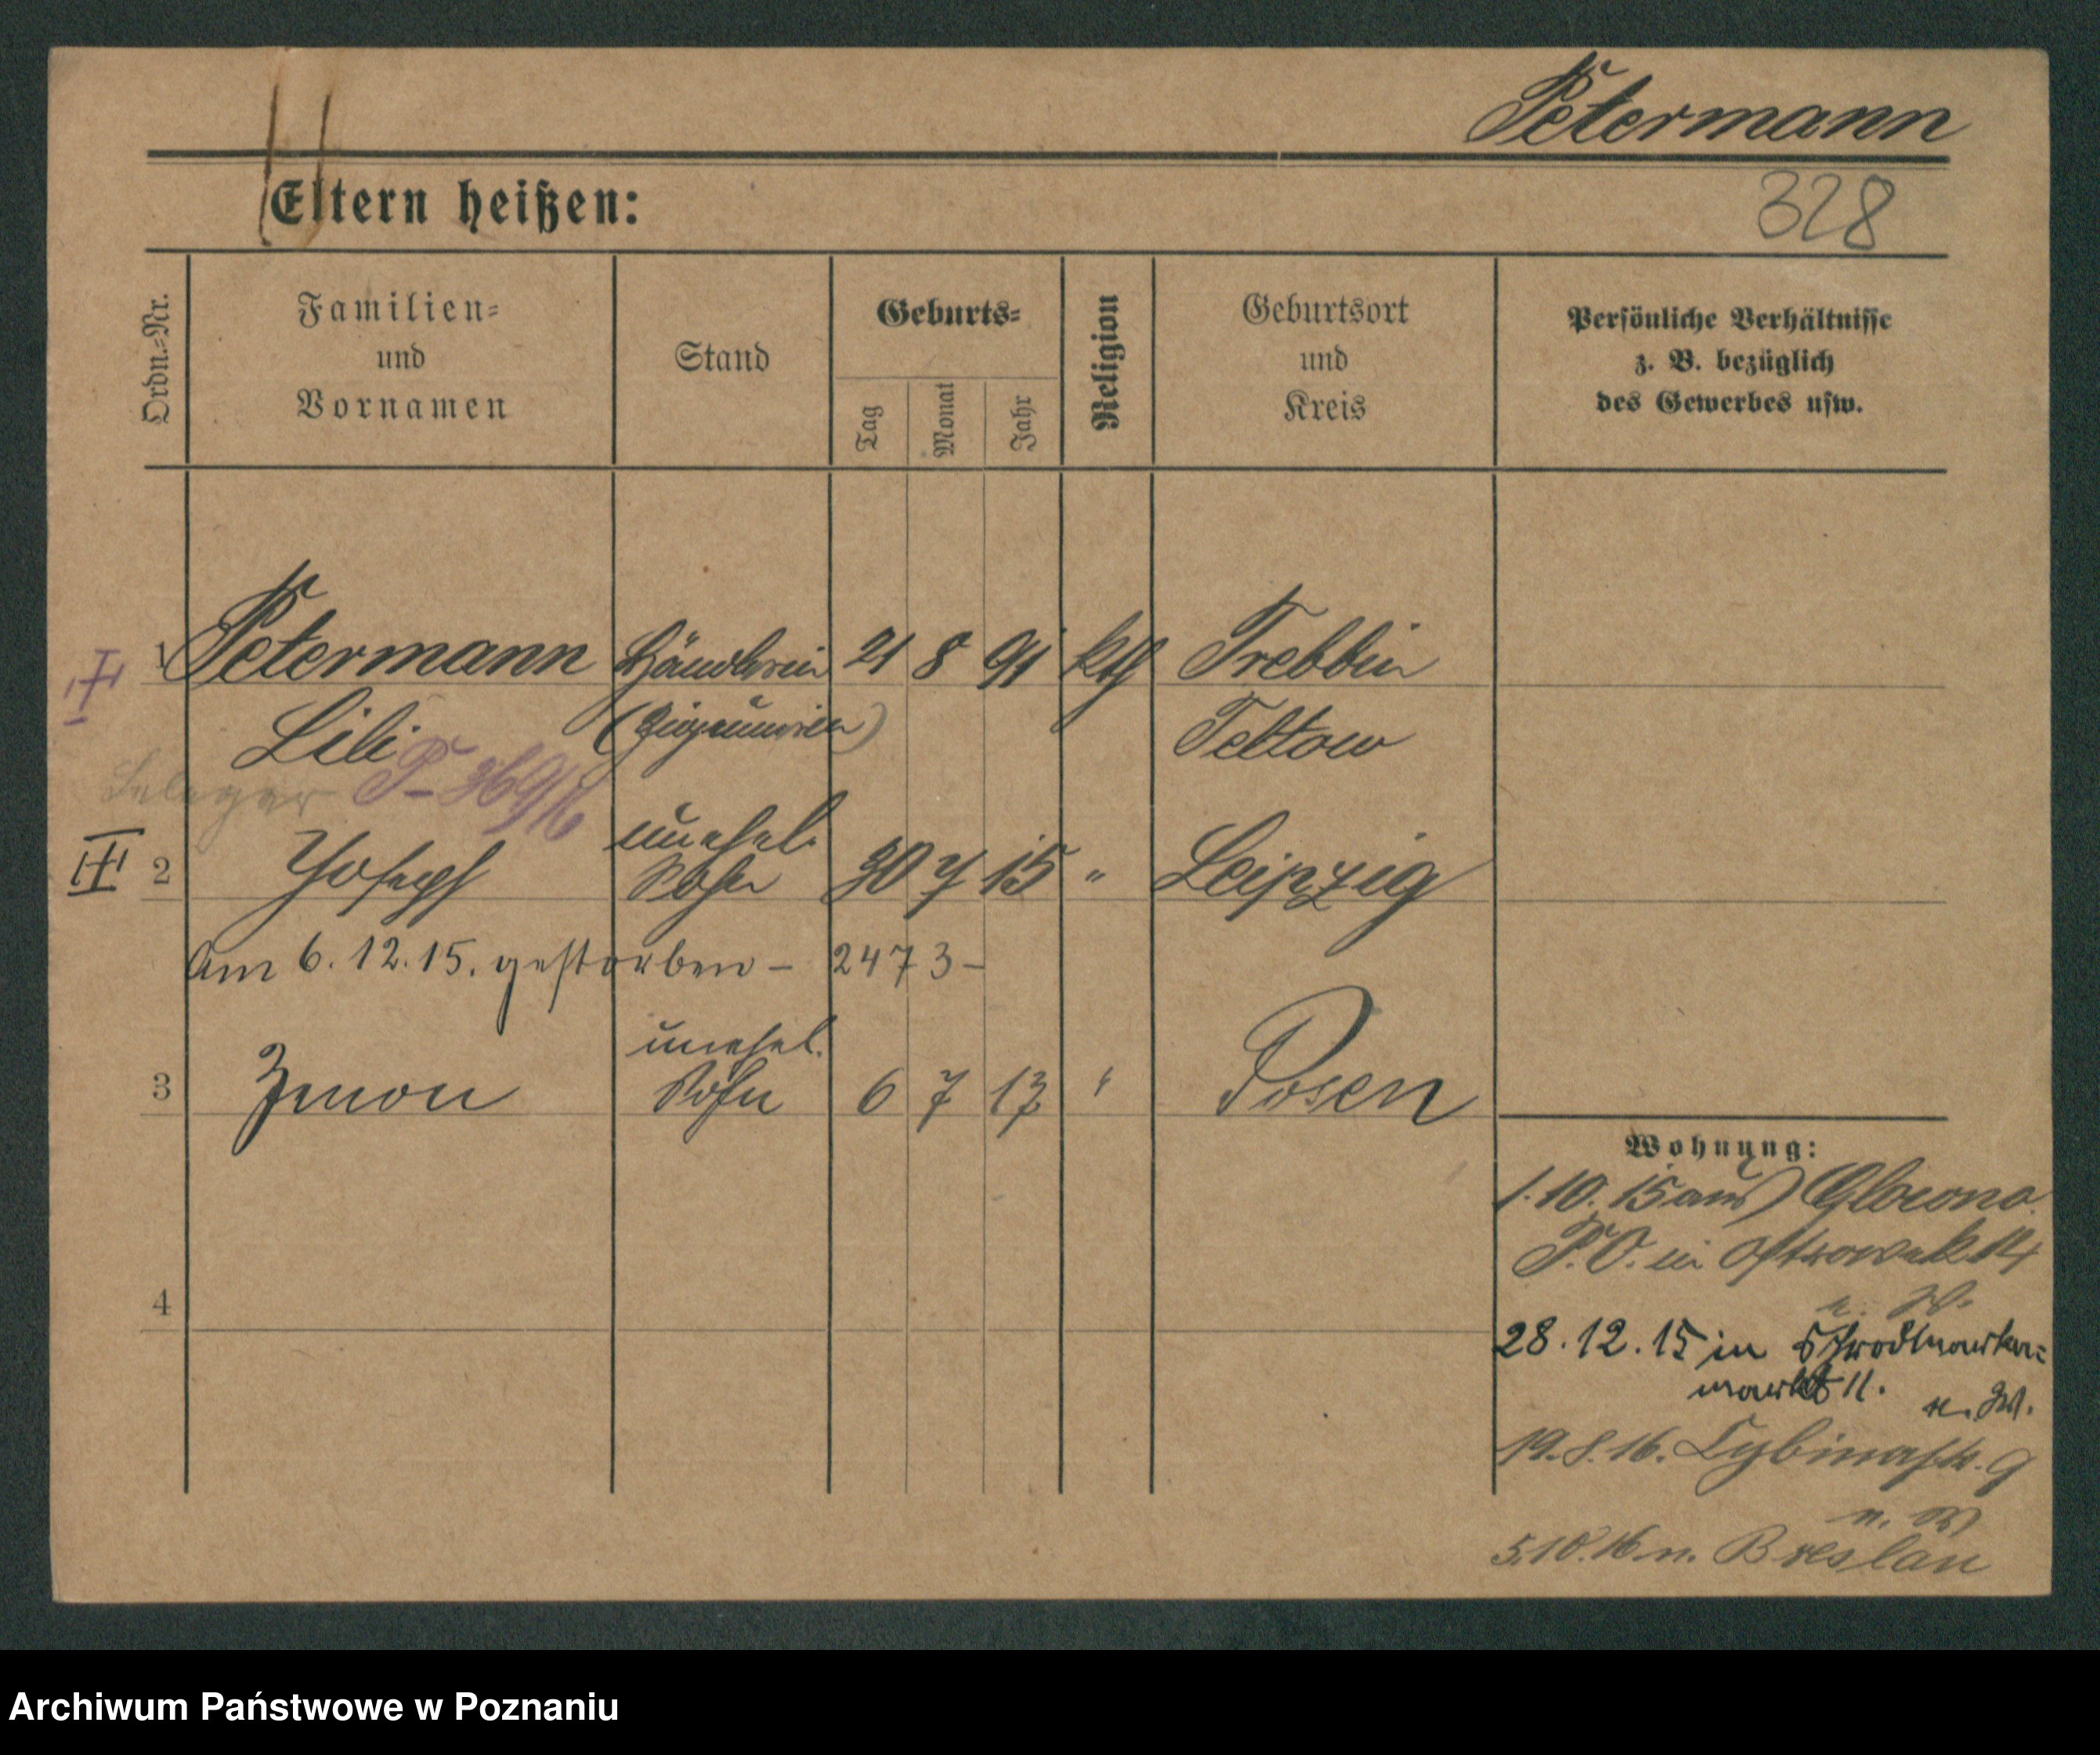 Petermann
328
Eltern heißen:
Ordn.-Nr.
Familien-
und
Vornamen
Stand
Geburts-
Tag
Monat
Jahr
Religion
Geburtsort
und
Kreis
Persönliche Verhältnisse
z. B. bezüglich
des Gewerbes usw.
1 Petermann Händlerin 21 8 91 kth Trebbin
Lili (Zigeunerin) Teltow
unehel.
2 Joseph Sohn 30 7 15 " Leipzig
Am 6.12.15. gestorben – 2473 –
unehel.
3 Sohn 6 7 17 " Posen
4
Wohnung:
1.10.15 aus Glowno
P.O. in Ostrowek 14
z. W.
28.12.15 in
markt 11. z. W.
19.8.16. Cybinastr. 9
5.10.16 n. Breslau
Archiwum Państwowe w Poznaniu